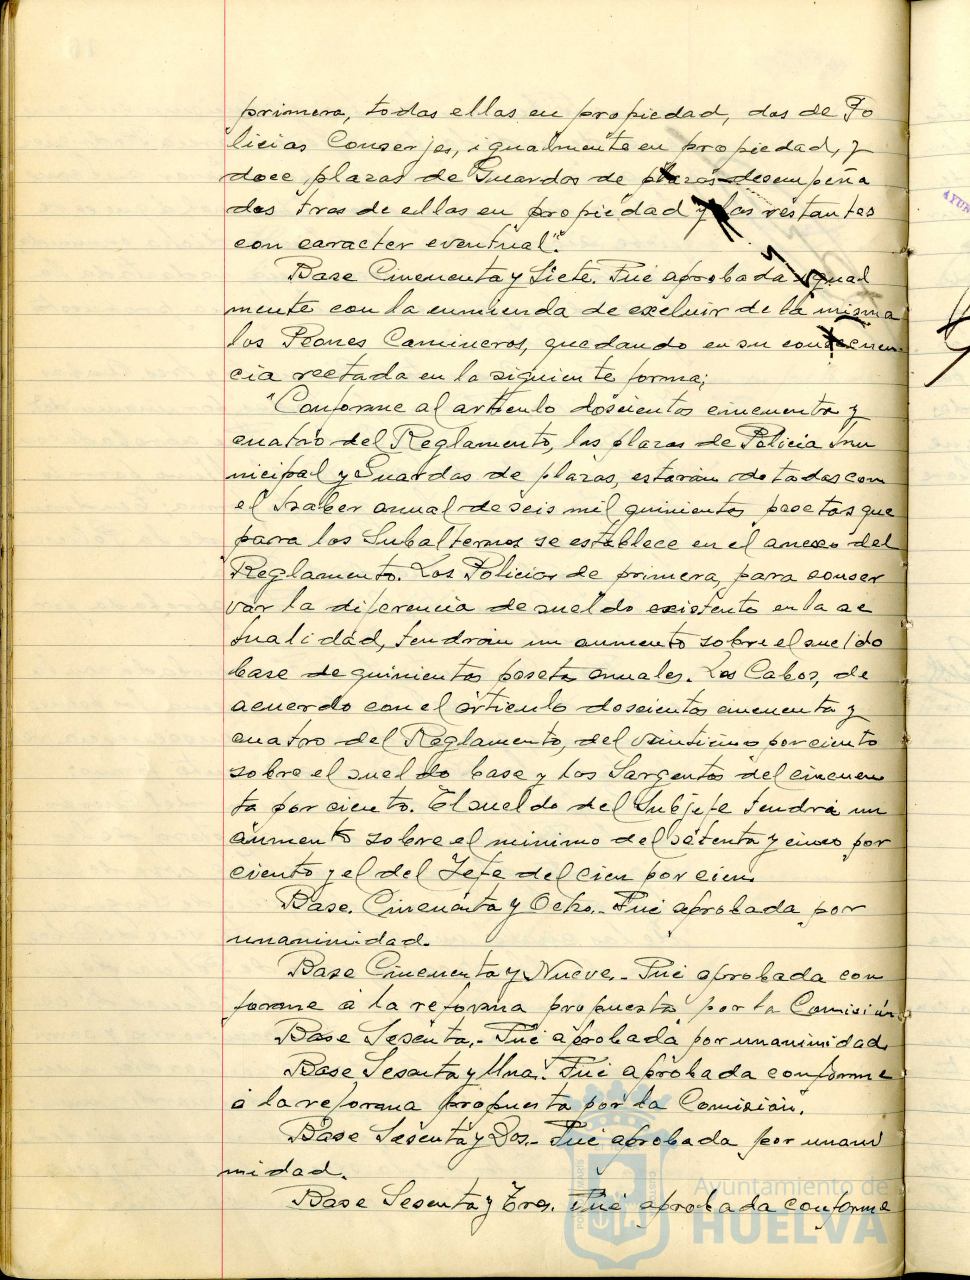 primera, todas ellas en propiedad, dos de Po
licias Conserjes, igualmente en propiedad, y
doce plazas de Guardas de plazas desempeña
das tres de ellas en propiedad y las restantes
con caracter eventual".
Base Cincuenta y Siete. Fué aprobada igual
mente con la enmienda de excluir de la misma
los Peones Camineros, quedando en su consecuen-
cia rectada en la siguiente forma;
"Conforme al artículo doscientos cincuenta y
cuatro del Reglamento, las plazas de Policia Mu
nicipal y Guardas de plazas, estarán dotadas con
el haber anual de seis mil quinientas pesetas que
para los Subalternos se establece en el anexo del
Reglamento. Los Policias de primera, para conser
var la diferencia de sueldo existente en la ac
tualidad, tendrán un aumento sobre el sueldo
base de quinientas pesetas anuales. Los Cabos, de
acuerdo con el articulo doscientos cincuenta y
cuatro del Reglamento, del veinticinco por ciento
sobre el sueldo base y los Sargentos del cincuen
ta por ciento. El sueldo del Subjefe tendrá un
aumento sobre el minimo del setenta y cinco por
ciento y el del Jefe del cien por cien.
Base. Cincuenta y Ocho.- Fué aprobada por
unanimidad.
Base Cincuenta y Nueve.- Fué aprobada con
forme a la reforma propuesta por la Comisión.
Base Sesenta.- Fué aprobada por unanimidad.
Base Sesenta y Una.- Fué aprobada conforme
a la reforma propuesta por la Comisión.
Base Sesenta y Dos.- Fué aprobada por unani
midad.
Base Sesenta y Tres. Fué aprobada conforme
Ayuntamiento de
HUELVA